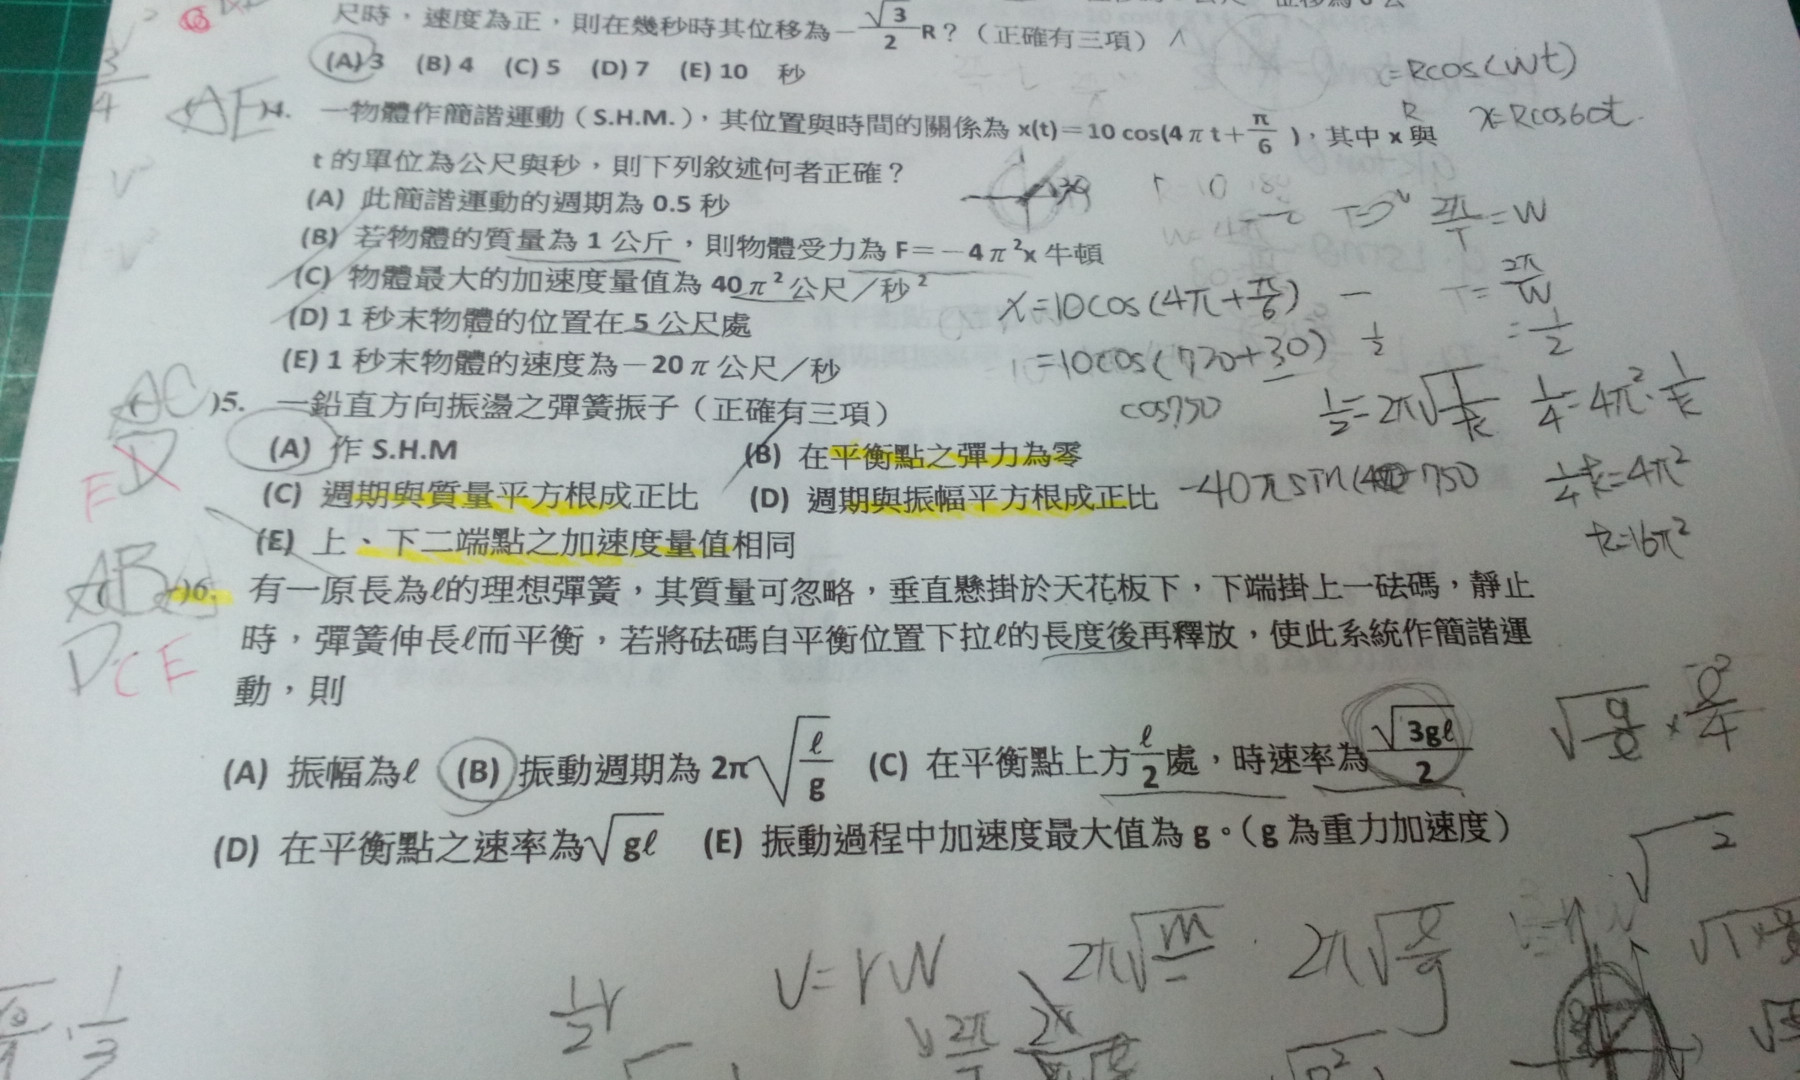 尺時，速度為正，則在幾秒時其位移為－√3/2 R？（正確有三項）
(A) 3 (B) 4 (C) 5 (D) 7 (E) 10 秒
x=Rcos(Wt)
3/4
(AE)4. 一物體作簡諧運動（S.H.M.），其位置與時間的關係為 x(t)＝10 cos(4π t＋π/6)，其中 x 與
R
x=Rcos60t.
t 的單位為公尺與秒，則下列敘述何者正確？
(A) 此簡諧運動的週期為 0.5 秒
2π/T=W
(B) 若物體的質量為 1 公斤，則物體受力為 F＝－4π²x 牛頓
(C) 物體最大的加速度量值為 40π²公尺／秒²
x=10cos(4π+π/6)
T=2π/W
=1/2
(D) 1 秒末物體的位置在 5 公尺處
=10cos(720+30) 1/2
(E) 1 秒末物體的速度為－20π公尺／秒
cos750
1/2=2π√1/k 1/4=4π²·1/k
(AC)5. 一鉛直方向振盪之彈簧振子（正確有三項）
D E
(A) 作 S.H.M (B) 在平衡點之彈力為零
(C) 週期與質量平方根成正比 (D) 週期與振幅平方根成正比
-40πsin 750
1/4k=4π²
k=16π²
(E) 上、下二端點之加速度量值相同
(AB)6. 有一原長為ℓ的理想彈簧，其質量可忽略，垂直懸掛於天花板下，下端掛上一砝碼，靜止
D C E
時，彈簧伸長ℓ而平衡，若將砝碼自平衡位置下拉ℓ的長度後再釋放，使此系統作簡諧運
動，則
(A) 振幅為ℓ (B) 振動週期為 2π√ℓ/g (C) 在平衡點上方ℓ/2處，時速率為√3gℓ/2
(D) 在平衡點之速率為√gℓ (E) 振動過程中加速度最大值為 g。（g 為重力加速度）
V=rW
2π√m
2π√ℓ/g
1/2 r
1/3